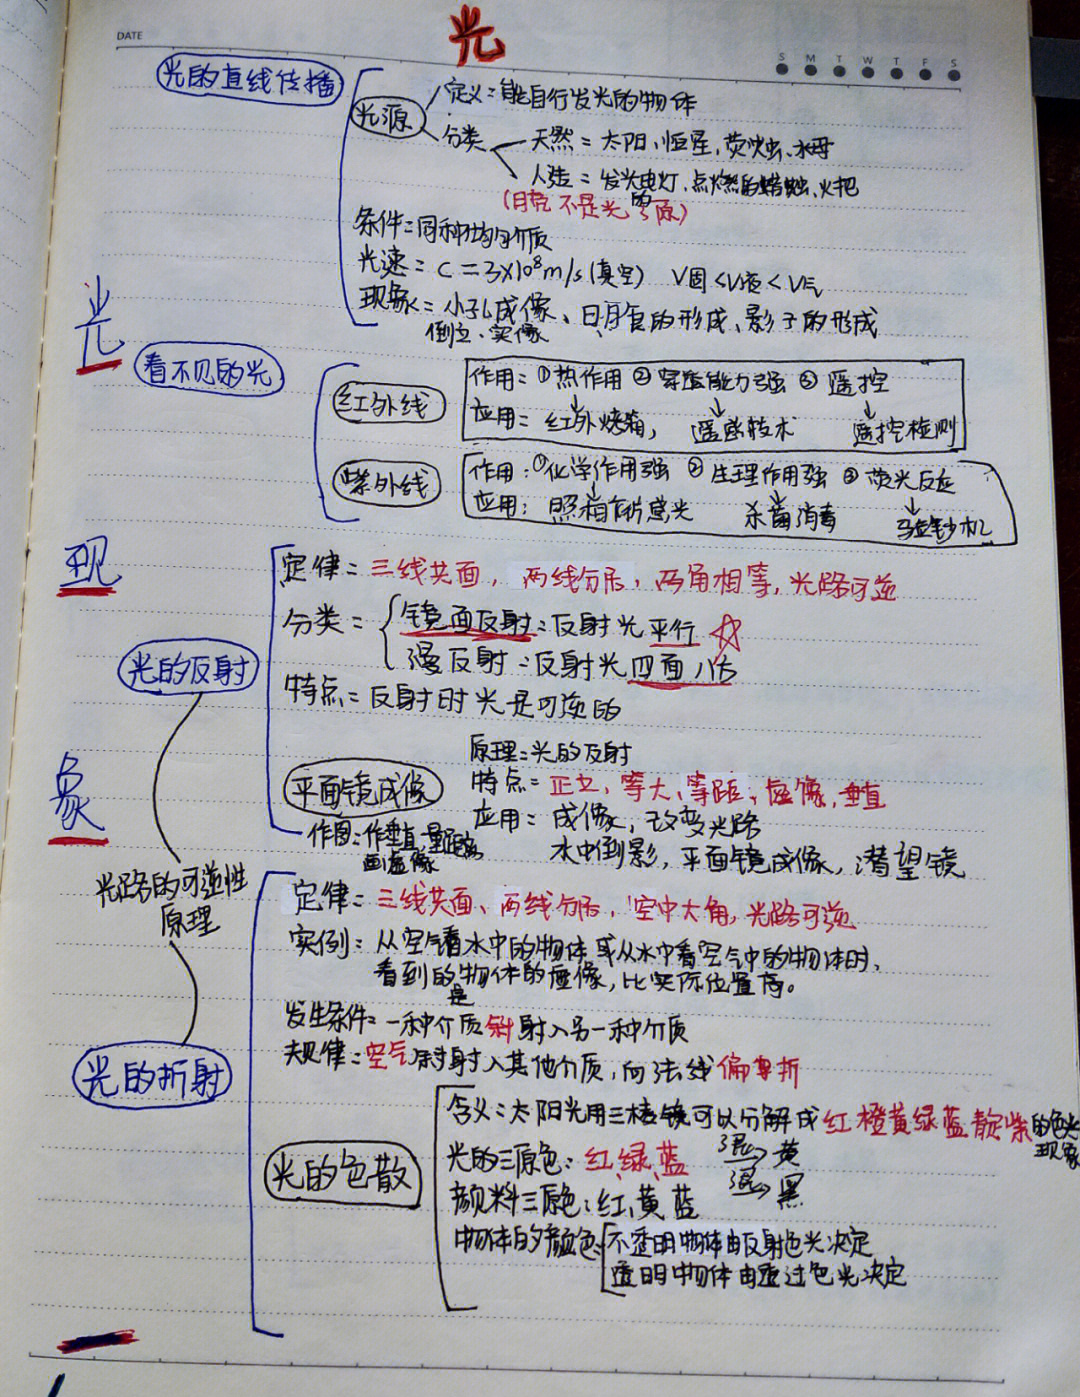 光
DATE
S M T W T F S
光的直线传播
光源
定义：能自行发光的物体
分类
天然：太阳、恒星，荧火虫、水母
人造：发光电灯、点燃的蜡烛、火把
(月亮不是光源)
条件：同种均匀介质
光速：C=3×10⁸m/s(真空) V固<V液<V气
现象：小孔成像、日月食的形成、影子的形成
倒立、实像
光
看不见的光
红外线
作用：①热作用②穿透能力强③遥控
应用：红外烤箱，遥感技术 遥控检测
紫外线
作用：①化学作用强 ②生理作用强 ③荧光反应
应用：照相底片感光 杀菌消毒 验钞机
现
定律：三线共面，两线分居，两角相等，光路可逆
分类：
镜面反射：反射光平行
漫反射：反射光四面八方
光的反射
特点：反射时光是可逆的
象
平面镜成像
原理：光的反射
特点：正立，等大，等距，虚像，垂直
应用：成像，改变光路
水中倒影，平面镜成像，潜望镜
作图：作垂直、量距离
画虚像
光路的可逆性
原理
光的折射
定律：三线共面、两线分居，空中大角，光路可逆
实例：从空气看水中的物体或从水中看空气中的物体时，
看到的是物体的虚像，比实际位置高。
发生条件：一种介质斜射入另一种介质
规律：空气斜射入其他介质，向法线偏折
光的色散
含义：太阳光用三棱镜可以分解成红橙黄绿蓝靛紫的色光
现象
光的三原色：红、绿、蓝 混→黄
混→黑
颜料三原色：红、黄 蓝
物体的颜色
不透明物体由反射色光决定
透明物体由透过色光决定